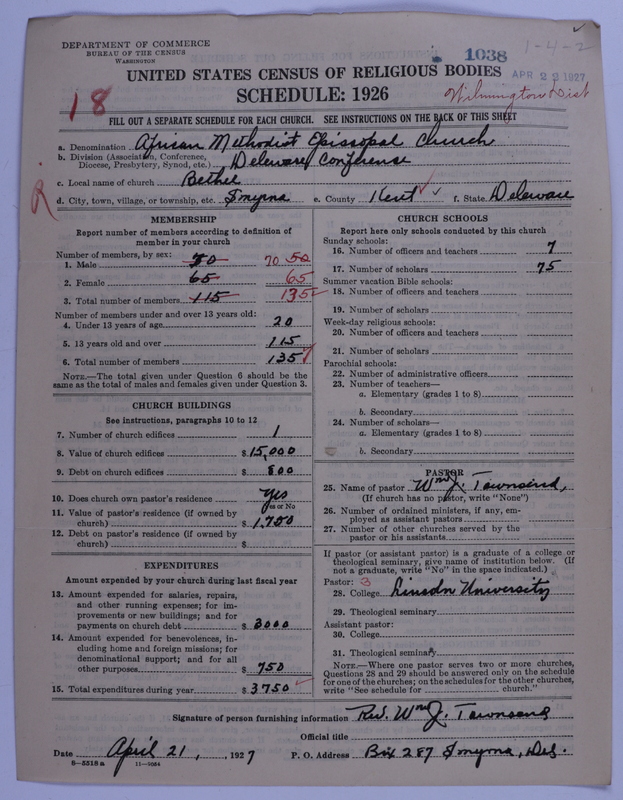 DEPARTMENT OF COMMERCE
BUREAU OF THE CENSUS
WASHINGTON
1038
1-4-2
APR 22 1927
UNITED STATES CENSUS OF RELIGIOUS BODIES
SCHEDULE: 1926
18
Wilmington Dist
FILL OUT A SEPARATE SCHEDULE FOR EACH CHURCH. SEE INSTRUCTIONS ON THE BACK OF THIS SHEET
a. Denomination African Methodist Episcopal Church
b. Division (Association, Conference, Diocese, Presbytery, Synod, etc.) Delaware Conference
c. Local name of church Bethel
d. City, town, village, or township, etc. Smyrna e. County Kent f. State Delaware
MEMBERSHIP
Report number of members according to definition of
member in your church
Number of members, by sex:
1. Male 50 70 50
2. Female 65 65
3. Total number of members 115 135
Number of members under and over 13 years old:
4. Under 13 years of age 20
5. 13 years old and over 115
6. Total number of members 135
NOTE.—The total given under Question 6 should be the
same as the total of males and females given under Question 3.
CHURCH BUILDINGS
See instructions, paragraphs 10 to 12
7. Number of church edifices 1
8. Value of church edifices $15,000
9. Debt on church edifices $ 800
10. Does church own pastor's residence yes
Yes or No
11. Value of pastor's residence (if owned by
church) $1,750
12. Debt on pastor's residence (if owned by
church) $
EXPENDITURES
Amount expended by your church during last fiscal year
13. Amount expended for salaries, repairs,
and other running expenses; for im-
provements or new buildings; and for
payments on church debt $3000
14. Amount expended for benevolences, in-
cluding home and foreign missions; for
denominational support; and for all
other purposes $ 750
15. Total expenditures during year $3750
CHURCH SCHOOLS
Report here only schools conducted by this church
Sunday schools:
16. Number of officers and teachers 7
17. Number of scholars 75
Summer vacation Bible schools:
18. Number of officers and teachers
19. Number of scholars
Week-day religious schools:
20. Number of officers and teachers
21. Number of scholars
Parochial schools:
22. Number of administrative officers
23. Number of teachers—
a. Elementary (grades 1 to 8)
b. Secondary
24. Number of scholars—
a. Elementary (grades 1 to 8)
b. Secondary
PASTOR
25. Name of pastor Wm J. Townsend,
(If church has no pastor, write "None")
26. Number of ordained ministers, if any, em-
ployed as assistant pastors
27. Number of other churches served by the
pastor or his assistants
If pastor (or assistant pastor) is a graduate of a college or
theological seminary, give name of institution below. (If
not a graduate, write "No" in the space indicated.)
Pastor: 3
28. College Lincoln University
29. Theological seminary
Assistant pastor:
30. College
31. Theological seminary
NOTE.—Where one pastor serves two or more churches,
Questions 28 and 29 should be answered only on the schedule
for one of the churches; on the schedules for the other churches,
write "See schedule for church."
Signature of person furnishing information Rev. Wm J. Townsend
Official title
Date April 21, 1927 P. O. Address Box 287 Smyrna, Del.
8-5518a 11-9054